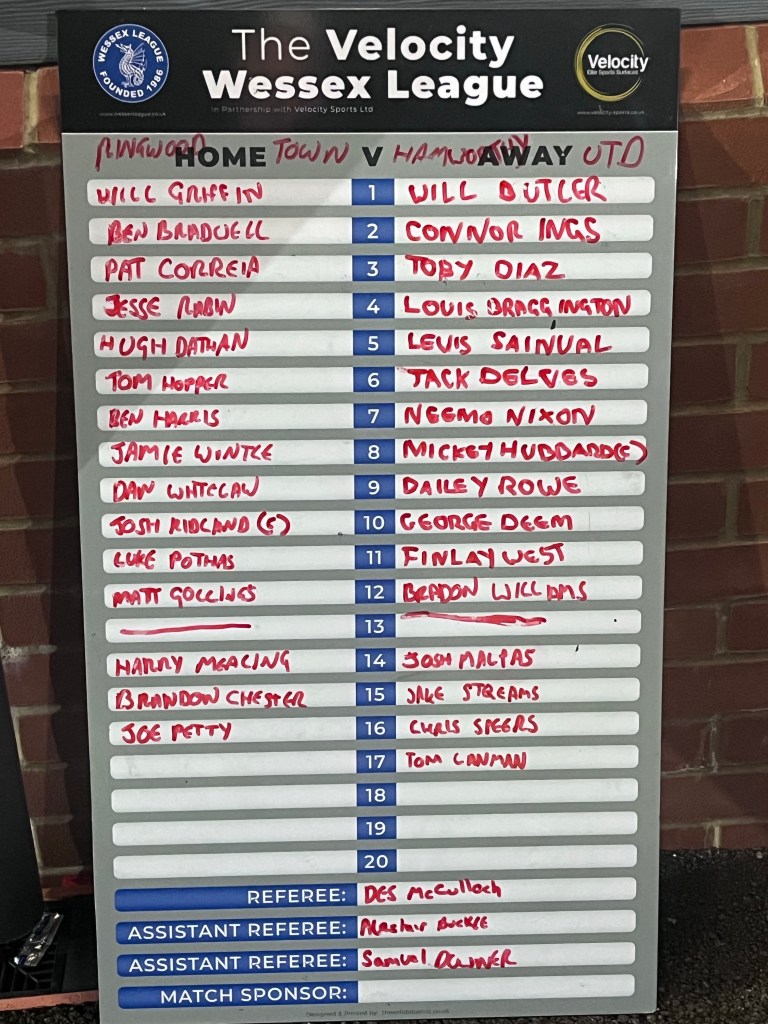 WESSEX LEAGUE
FOUNDED 1986
The Velocity
Wessex League
In Partnership with Velocity Sports Ltd
Velocity
Elite Sports Surfaces
www.wessexleague.co.uk
www.velocity-sports.co.uk
HOME V AWAY
RINGWOOD TOWN HAMWORTHY UTD
WILL GRIFFIN 1 WILL BUTLER
BEN BRADWELL 2 CONNOR INGS
PAT CORREIA 3 TOBY DIAZ
JESSE RABIN 4 LOUIS BRAGGINGTON
HUGH DATHAN 5 LEVIS SAINVAL
TOM HOPPER 6 JACK DELVES
BEN HARRIS 7 NEEMO NIXON
JAMIE WINTLE 8 MICKEY HUBBARD(C)
DAN WHITELAW 9 DAILEY ROWE
JOSH RIDLAND (C) 10 GEORGE DEEM
LUKE POTHAS 11 FINLAY WEST
MATT GOLLINGS 12 BRADON WILLIAMS
13
HARRY MEACING 14 JOSH MALPAS
BRANDON CHESTER 15 JAKE STREAMS
JOE PETTY 16 CHRIS SPEERS
17 TOM LANMAN
18
19
20
REFEREE: DES McCulloch
ASSISTANT REFEREE: Alastair BUCKLE
ASSISTANT REFEREE: Samuel DOWNER
MATCH SPONSOR:
Designed & Printed by: